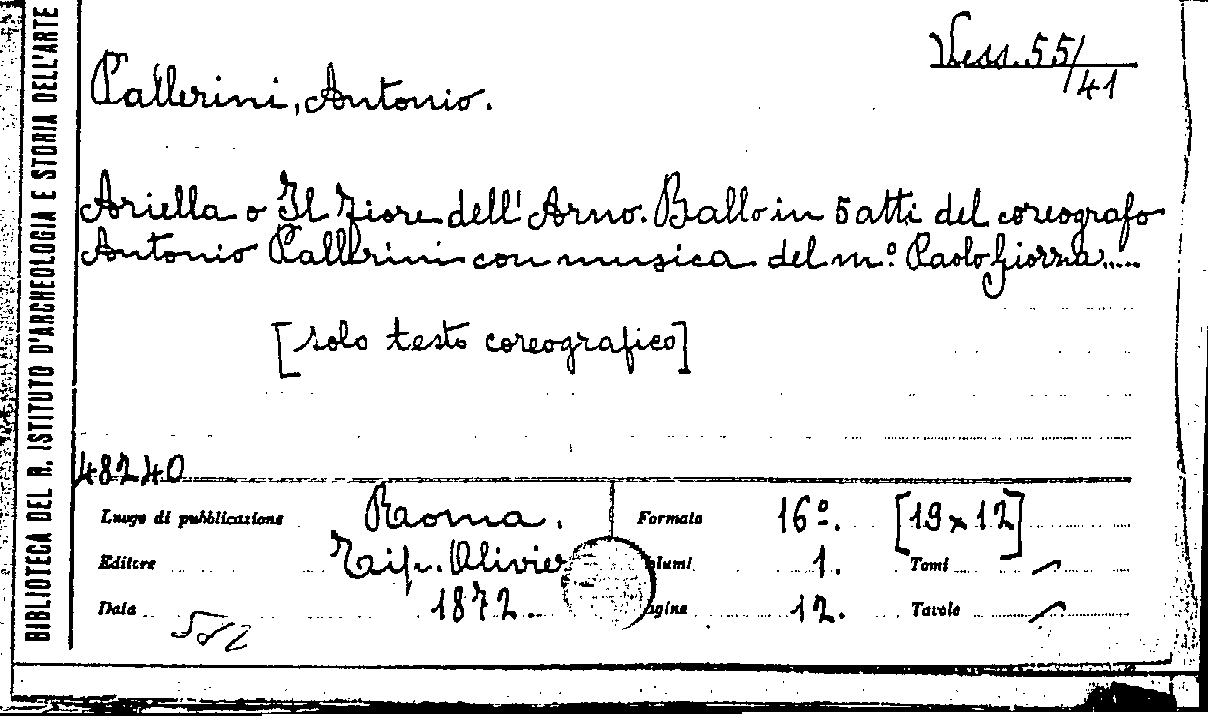 BIBLIOTECA DEL R. ISTITUTO D'ARCHEOLOGIA E STORIA DELL'ARTE
Vess. 55/41
Pallerini, Antonio.
Ariella o Il fiore dell'Arno. Ballo in 5 atti del coreografo
Antonio Pallerini con musica del m.º Paolo Giorza.....
[solo testo coreografico]
48240
Luogo di pubblicazione Roma. Formato 16º. [19 x 12]
Editore Tip. Olivier 1. Tomi
Data 1872. 12. Tavole